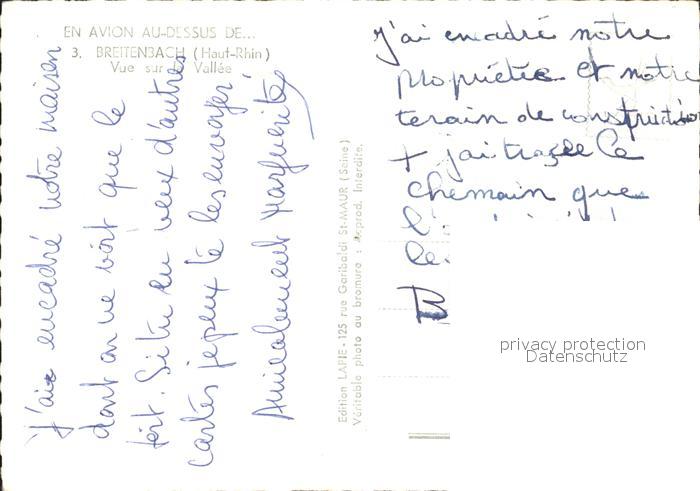 EN AVION AU-DESSUS DE...
3. BREITENBACH (Haut-Rhin)
Vue sur la Vallée
J'ai encadré notre maison
dont on ne voit que le
toit. Si tu en veux d'autres
cartes je peux te les envoyer.
Amicalement Marguerite
Edition LAPIE - 125 rue Garibaldi St-MAUR (Seine)
Véritable photo au bromure : Reprod. Interdite.
j'ai encadré notre
propriétée et notre
terain de construction
+ j'ai tracée le
chemain que
privacy protection
Datenschutz